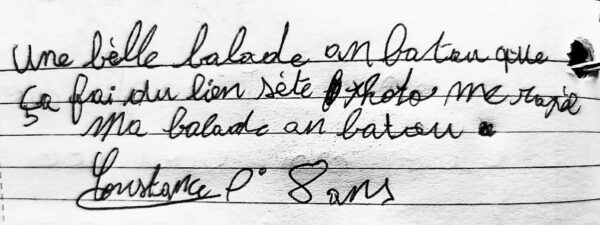 Une bèlle balade an batou que
ça fai du lien sète photo me rapèl
Ma balade an batou
Constance P. 8 ans